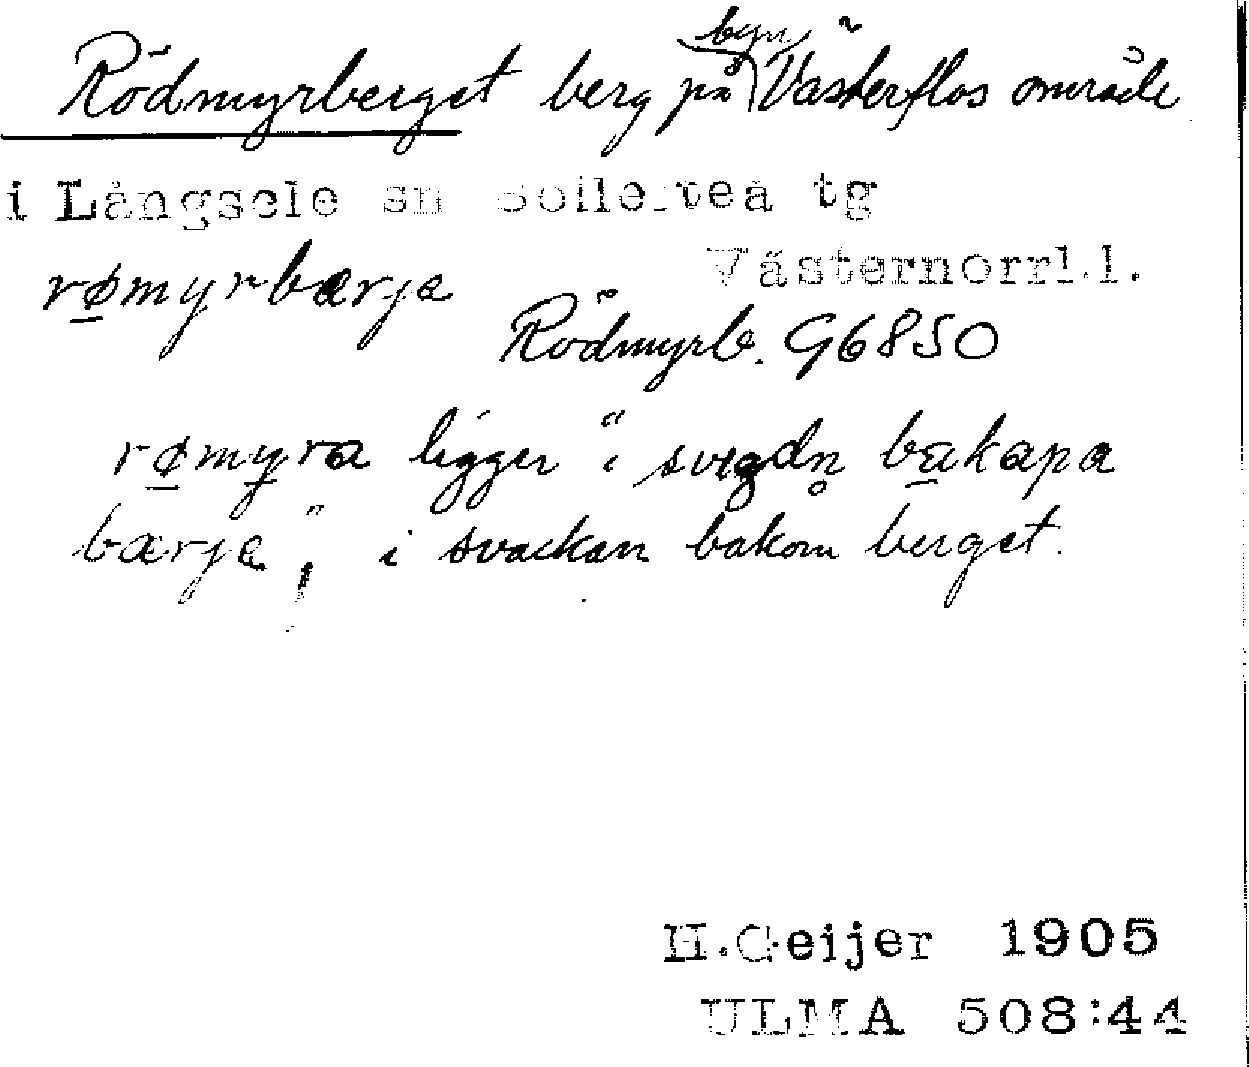 Rödmyrberget berg på byn Västerflos område
i Långsele sn Sollefteå tg
Västernorrl.l.
rømyrbærje
Rödmyrb. G6850
rømyra ligger "i svegdn̥ bakapa
bærje", i svackan bakom berget.
H.Geijer 1905
ULMA 508:44